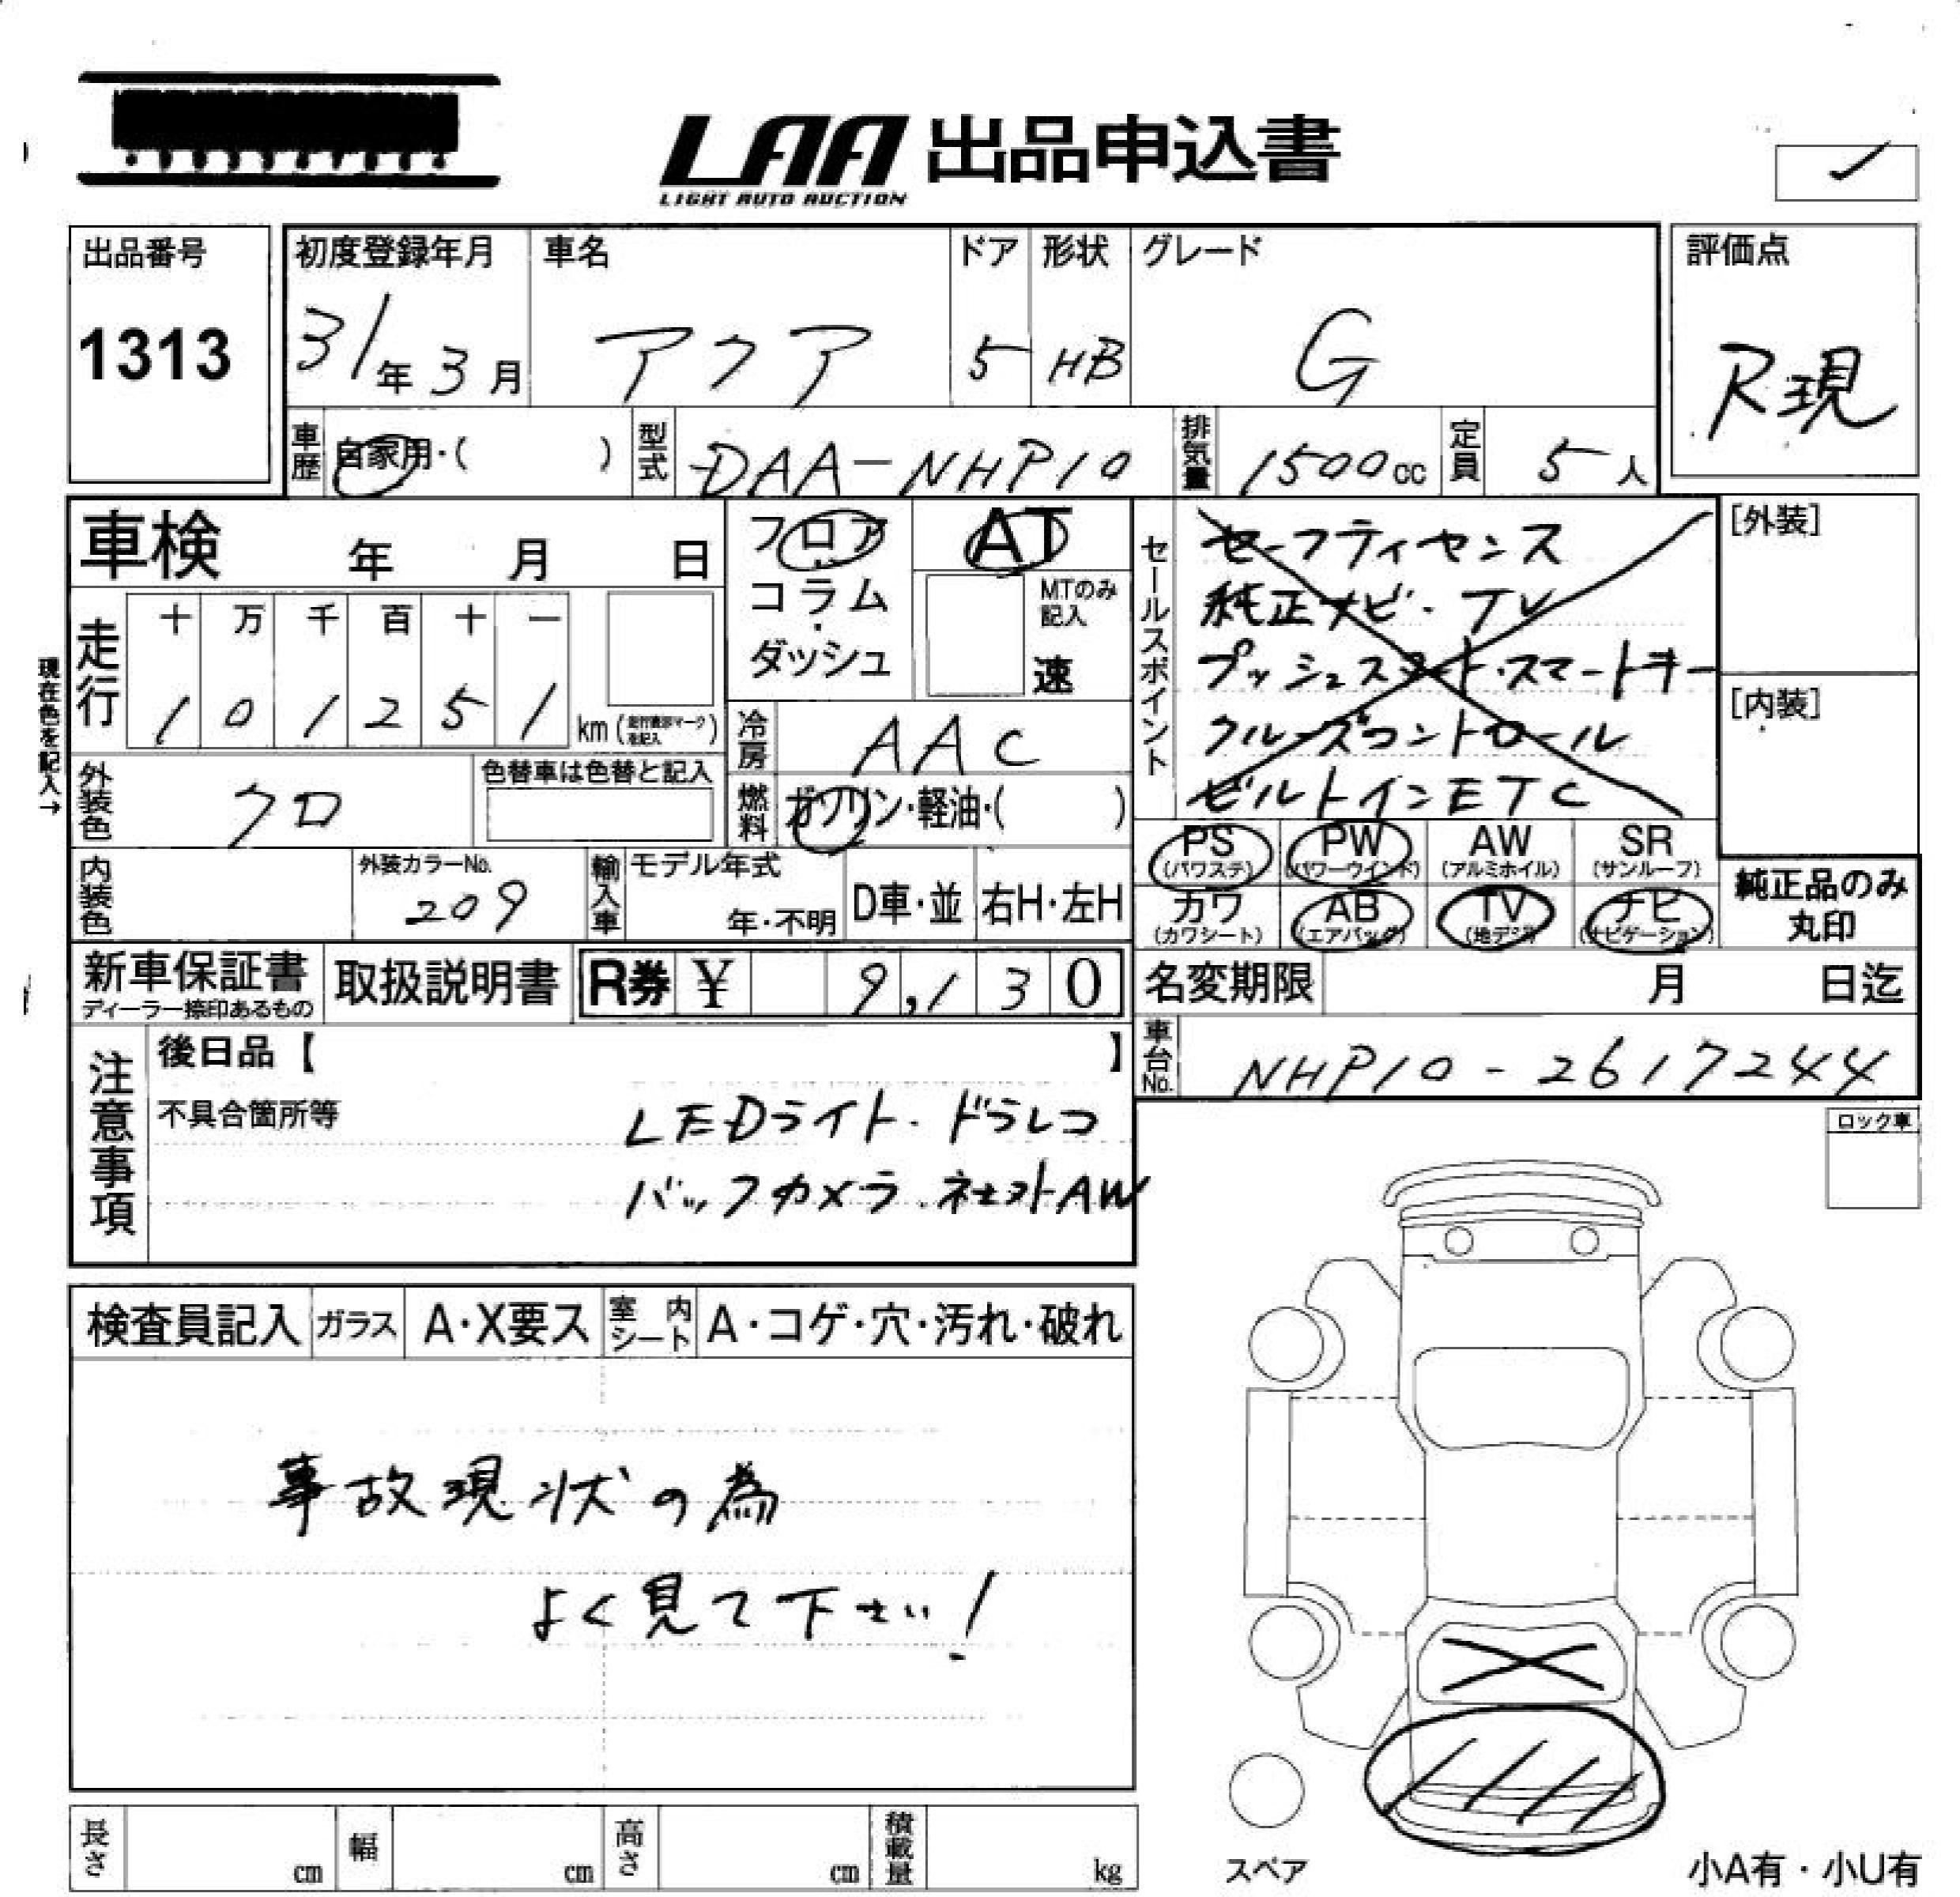 LAA 出品申込書
LIGHT AUTO AUCTION
出品番号
1313
初度登録年月
31年3月
車名
アクア
ドア
5
形状
HB
グレード
G
評価点
R現
車歴
自家用・( )
型式
DAA-NHP10
排気量
1500cc
定員
5人
車検 年 月 日
フロア・コラム・ダッシュ
AT
MTのみ記入
速
セールスポイント
セーフティセンス
純正ナビ・TV
プッシュスタート・スマートキー
クルーズコントロール
ビルトインETC
[外装]
[内装]
現在色を記入→
走行
十 万 千 百 十 一
1 0 1 2 5 1 km
冷房
AAC
外装色
クロ
色替車は色替と記入
燃料
ガソリン・軽油・( )
PS (パワステ)
PW (パワーウインド)
AW (アルミホイル)
SR (サンルーフ)
カワ (カワシート)
AB (エアバッグ)
TV (地デジ)
ナビ (ナビゲーション)
純正品のみ丸印
内装色
外装カラーNo.
209
輸入車
モデル年式
年・不明
D車・並
右H・左H
新車保証書
ディーラー捺印あるもの
取扱説明書
R券 ¥ 9,130
名変期限 月 日迄
車台No.
NHP10-2617244
注意事項
後日品【 】
不具合箇所等
LEDライト・ドラレコ
バックカメラ・社外AW
ロック車
検査員記入
ガラス
A・X要ス
室内シート
A・コゲ・穴・汚れ・破れ
事故現状の為
よく見て下さい!
長さ cm
幅 cm
高さ cm
積載量 kg
スペア
小A有・小U有